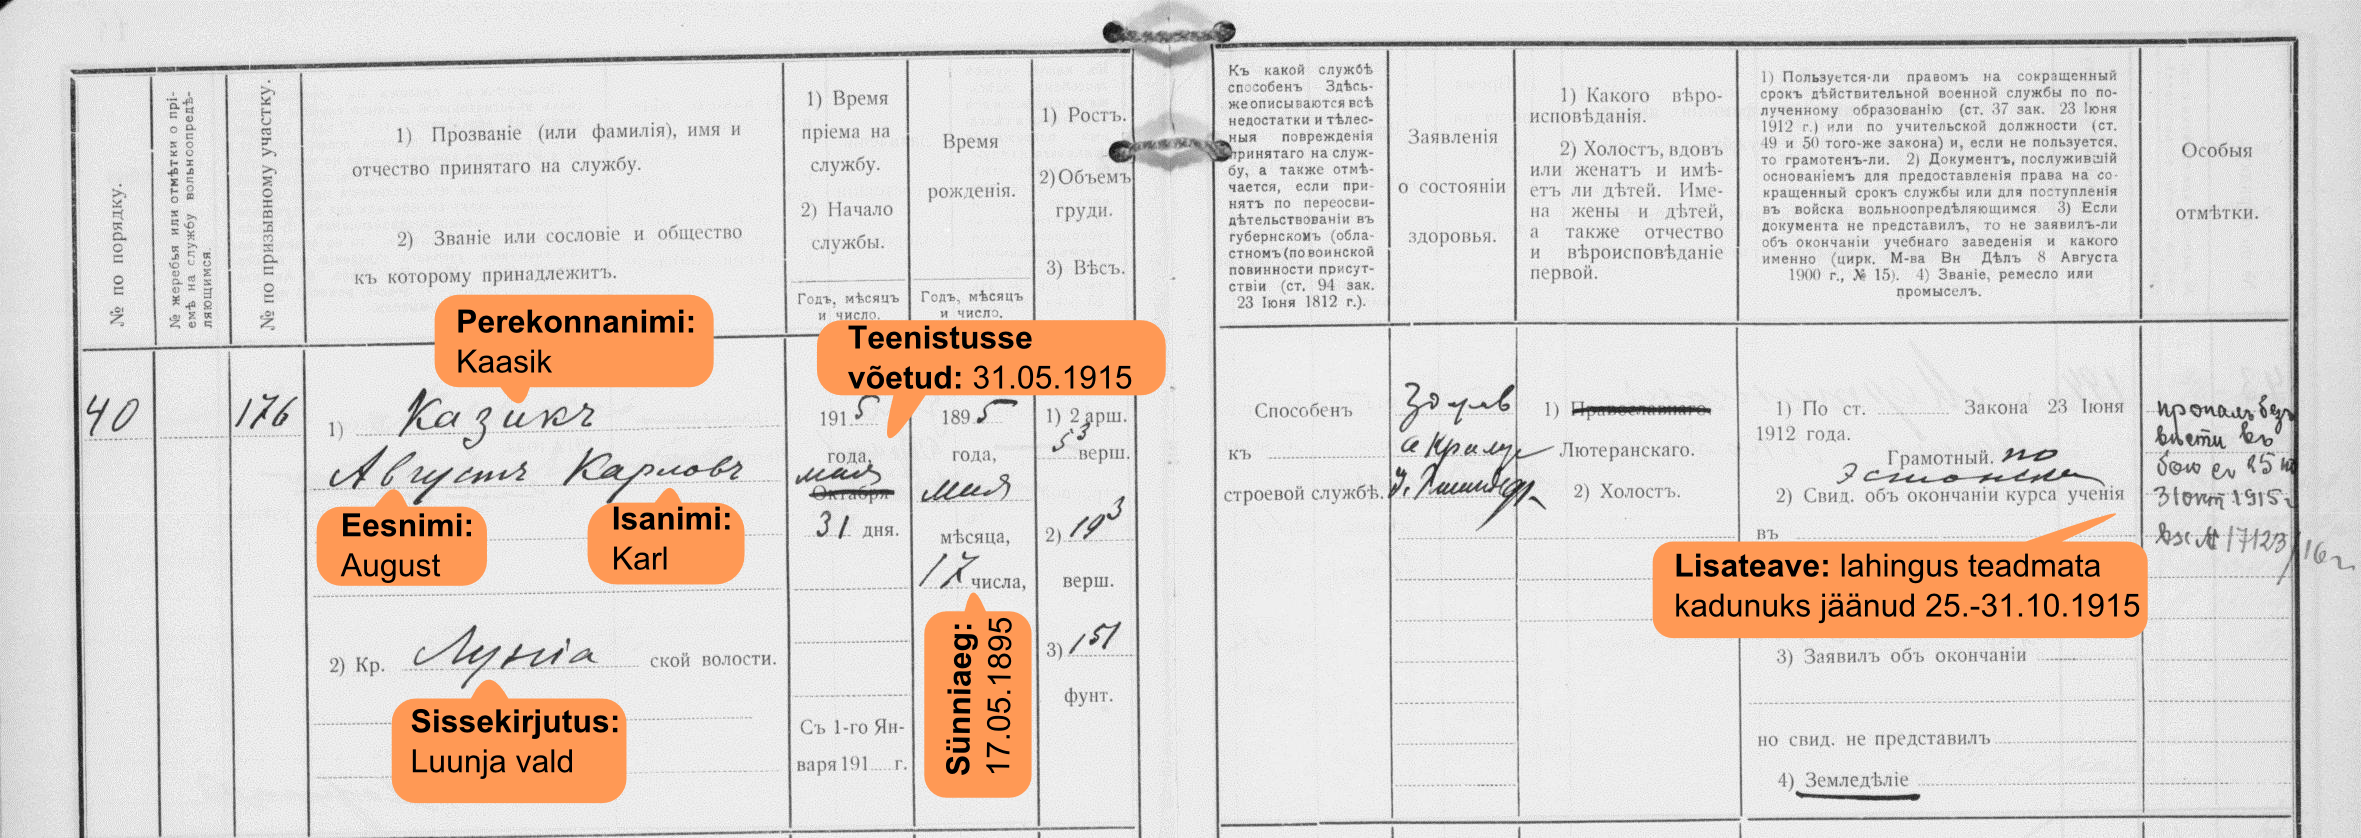 № по порядку.
№ жеребья или отмѣтки о прі-
емѣ на службу вольноопредѣ-
ляющимся.
№ по призывному участку.
1) Прозваніе (или фамилія), имя и
отчество принятаго на службу.
2) Званіе или сословіе и общество
къ которому принадлежитъ.
1) Время
пріема на
службу.
2) Начало
службы.
Годъ, мѣсяцъ
и число.
Время
рожденія.
Годъ, мѣсяцъ
и число.
1) Ростъ.
2) Объемъ
груди.
3) Вѣсъ.
Къ какой службѣ
способенъ Здѣсь-
же описываются всѣ
недостатки и тѣлес-
ныя поврежденія
принятаго на служ-
бу, а также отмѣ-
чается, если при-
нятъ по переосви-
дѣтельствованіи въ
губернскомъ (обла-
стномъ (по воинской
повинности присут-
ствіи (ст. 94 зак.
23 Іюня 1812 г.).
Заявленія
о состояніи
здоровья.
1) Какого вѣро-
исповѣданія.
2) Холостъ, вдовъ
или женатъ и имѣ-
етъ ли дѣтей. Име-
на жены и дѣтей,
а также отчество
и вѣроисповѣданіе
первой.
1) Пользуется-ли правомъ на сокращенный
срокъ дѣйствительной военной службы по по-
лученному образованію (ст. 37 зак. 23 Іюня
1912 г.) или по учительской должности (ст.
49 и 50 того-же закона) и, если не пользуется,
то грамотенъ-ли. 2) Документъ, послужившій
основаніемъ для предоставленія права на со-
кращенный срокъ службы или для поступленія
въ войска вольноопредѣляющимся 3) Если
документа не представилъ, то не заявилъ-ли
объ окончаніи учебнаго заведенія и какого
именно (цирк. М-ва Вн Дѣлъ 8 Августа
1900 г., № 15). 4) Званіе, ремесло или
промыселъ.
Особыя
отмѣтки.
Perekonnanimi:
Kaasik
Teenistusse
võetud: 31.05.1915
40
176
1) Казикъ
Августъ Карловъ
Eesnimi:
August
Isanimi:
Karl
2) Кр. Луніа ской волости.
Sissekirjutus:
Luunja vald
1915
года,
мая
Октября
31 дня.
Съ 1-го Ян-
варя 191 г.
1895
года,
мая
мѣсяца,
17 числа,
Sünniaeg:
17.05.1895
1) 2 арш.
5 3 верш.
2) 19 3
верш.
3) 151
фунт.
Способенъ
къ
строевой службѣ.
1) Православнаго
Лютеранскаго.
2) Холостъ.
1) По ст. Закона 23 Іюня
1912 года.
Грамотный. по
эстонски
2) Свид. объ окончаніи курса ученія
въ
Lisateave: lahingus teadmata
kadunuks jäänud 25.-31.10.1915
3) Заявилъ объ окончаніи
но свид. не представилъ
4) Земледѣліе
пропалъ безъ
вѣсти въ
бою съ 25 по
31 окт 1915 г
вх № 17123/16 г